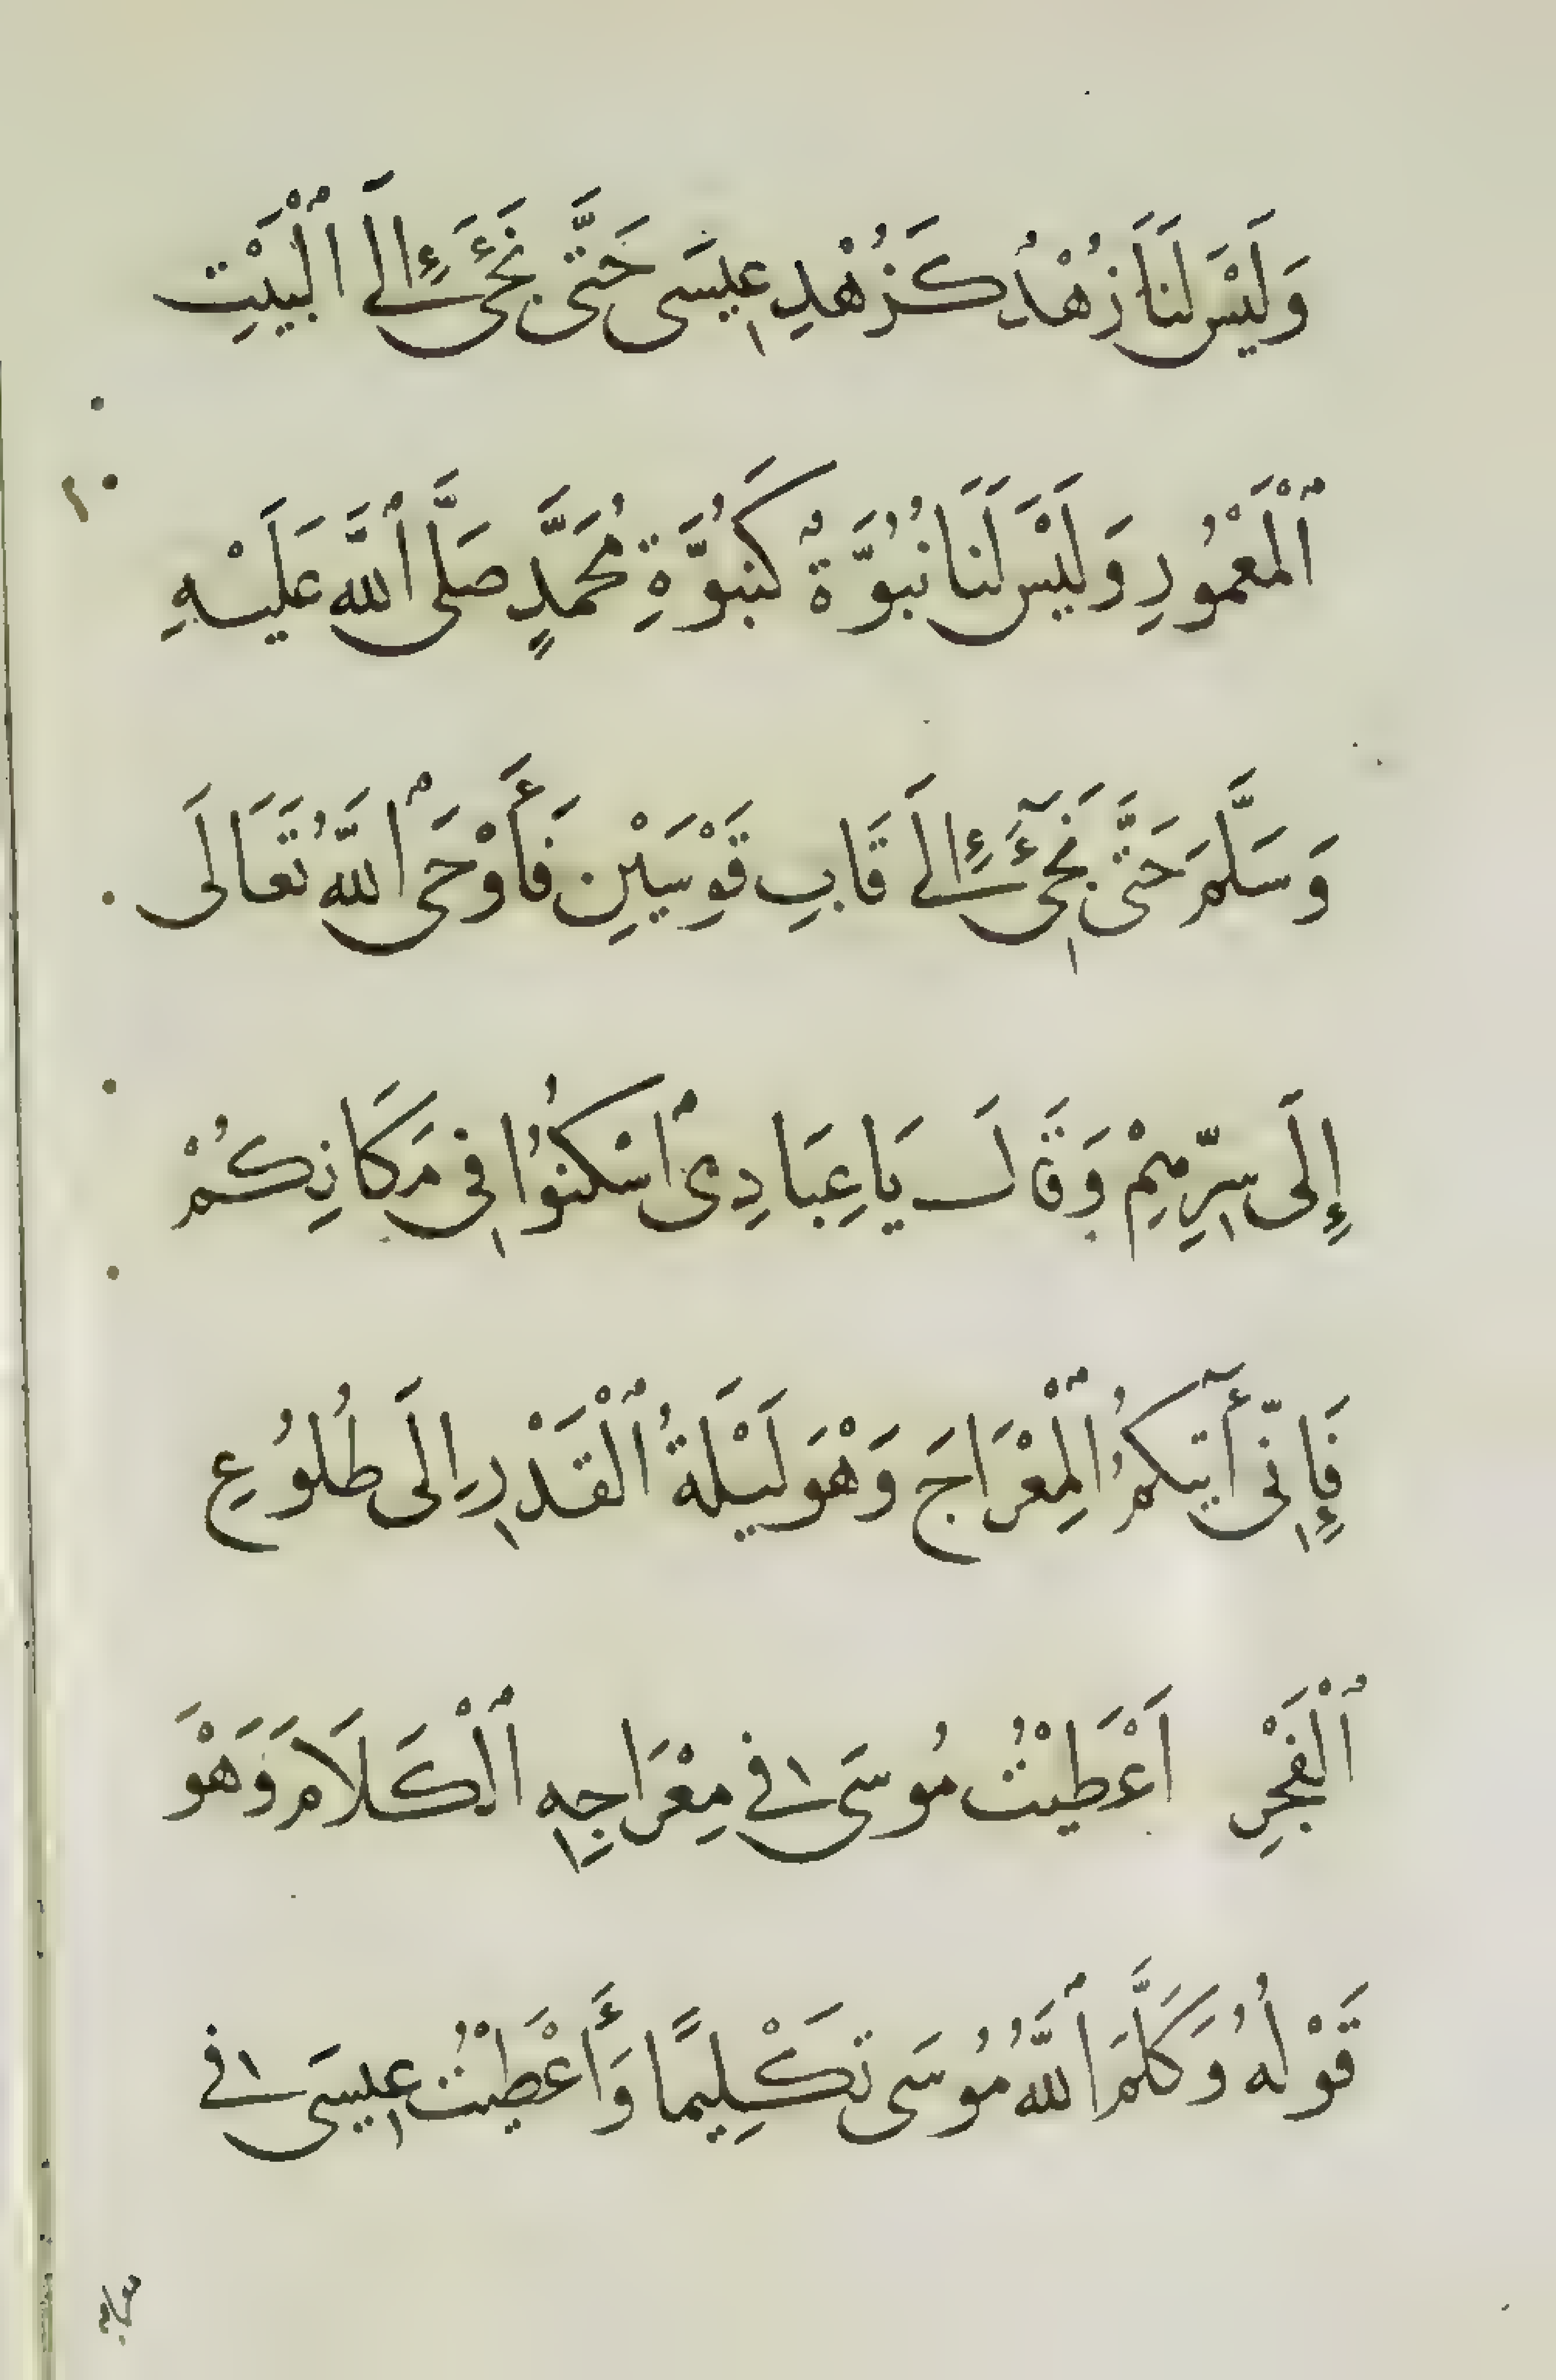 وَلَيْسَ لَنَا زُهْدٌ كَزُهْدِ عِيسَى حَتَّى نَجِيءَ إِلَى ٱلْبَيْتِ
ٱلْمَعْمُورِ وَلَيْسَ لَنَا نُبُوَّةٌ كَنُبُوَّةِ مُحَمَّدٍ صَلَّى ٱللَّهُ عَلَيْهِ
وَسَلَّمَ حَتَّى نَجِيٓءَ إِلَى قَابِ قَوْسَيْنِ فَأَوْحَى ٱللَّهُ تَعَالَى
إِلَى سِرِّهِمْ وَقَالَ يَا عِبَادِى ٱسْكُنُوا فِى مَكَانِكُمْ
فَإِنِّى أٓتِيكُمُ ٱلْمِعْرَاجَ وَهْوَ لَيْلَةُ ٱلْقَدْرِ إِلَى طُلُوعِ
ٱلْفَجْرِ اَعْطَيْتُ مُوسَى فِى مِعْرَاجِهِ ٱلْكَلَامَ وَهْوَ
قَوْلُهُ وَكَلَّمَ ٱللَّهُ مُوسَى تَكْلِيمًا وَأَعْطَيْتُ عِيسَى فِى